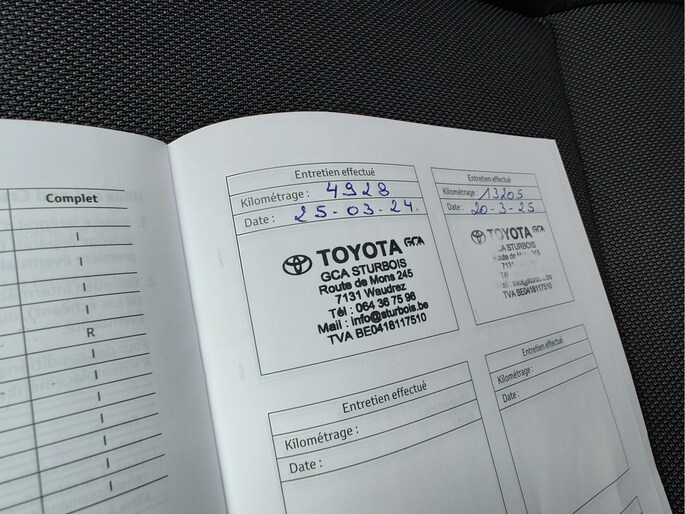 Complet
I
I
I
I
R
I
I
I
I
I
Entretien effectué
Kilométrage : 4928
Date : 25-03-24.
TOYOTA GCA
GCA STURBOIS
Route de Mons 245
7131 Waudrez
Tél : 064 36 75 96
Mail : info@sturbois.be
TVA BE0418117510
Entretien effectué
Kilométrage : 13205
Date : 20-3-25
TOYOTA GCA
GCA STURBOIS
TVA BE0418117510
Entretien effectué
Kilométrage :
Date :
Entretien effectué
Kilométrage :
Date :